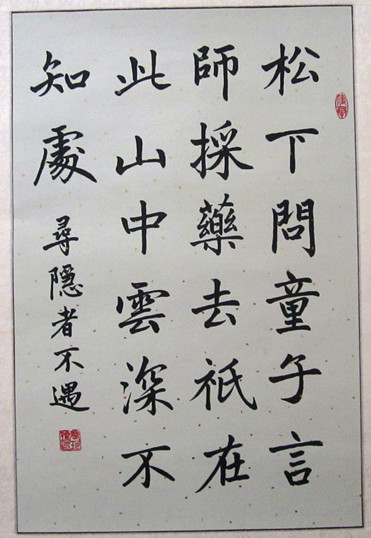 松下問童子言
師採藥去祇在
此山中雲深不
知處
尋隱者不遇